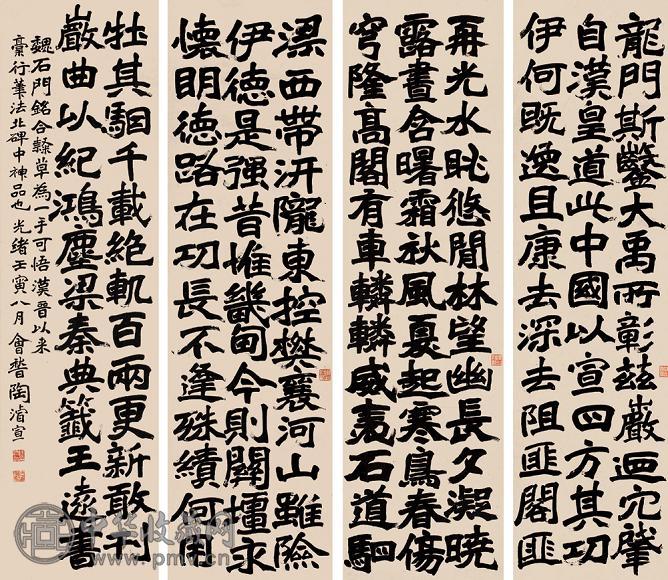 龍門斯鑿大禹所彰茲巖迺穴肇
自漢皇道此中國以宣四方其功
伊何既逸且康去深去阻匪閣匪
梁西帶汧隴東控樊襄河山雖險
伊德是强昔惟畿甸今則關壃永
懷明德路在功長不逢殊績何用
再光水眺悠閒林望幽長夕凝曉
露晝含曙霜秋風夏起寒鳥春傷
穹隆高閣有車轔轔威夷石道駟
牡其駰千載絶軌百兩更新敢刊
巖曲以紀鴻塵梁秦典籤王遠書
魏石門銘合隸草為一手可悟漢晉以来
稾行筆法北碑中神品也 光緒壬寅八月 會稽陶濬宣
中华收藏网
www.pmv.cn